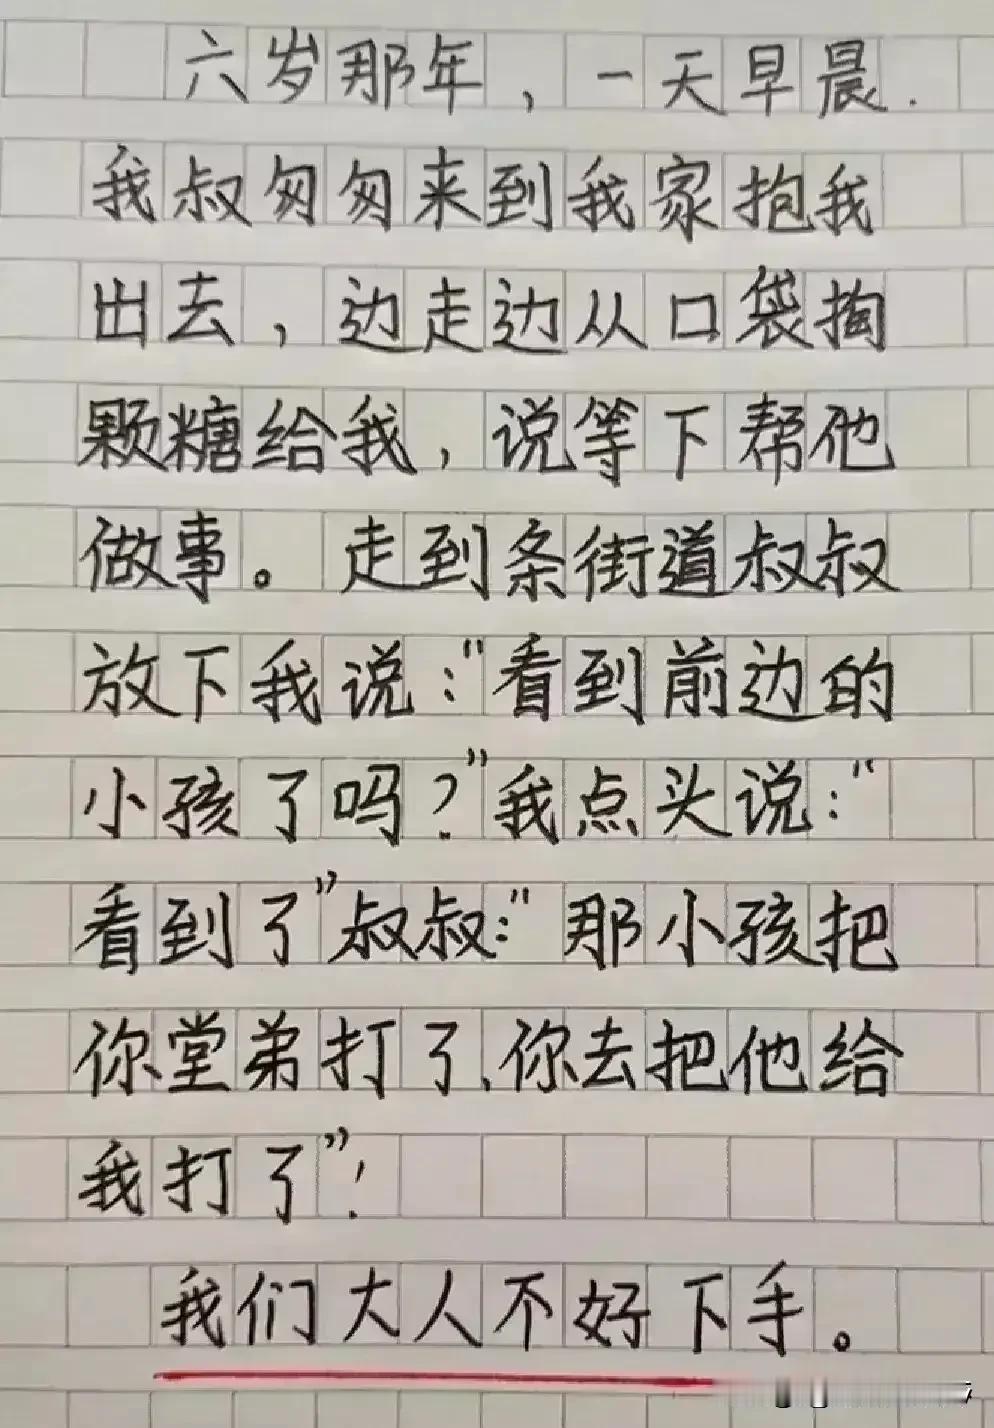 六岁那年，一天早晨.
我叔匆匆来到我家抱我
出去，边走边从口袋掏
颗糖给我，说等下帮他
做事。走到条街道叔叔
放下我说："看到前边的
小孩了吗？"我点头说："
看到了"叔叔："那小孩把
你堂弟打了、你去把他给
我打了"！
我们大人不好下手。